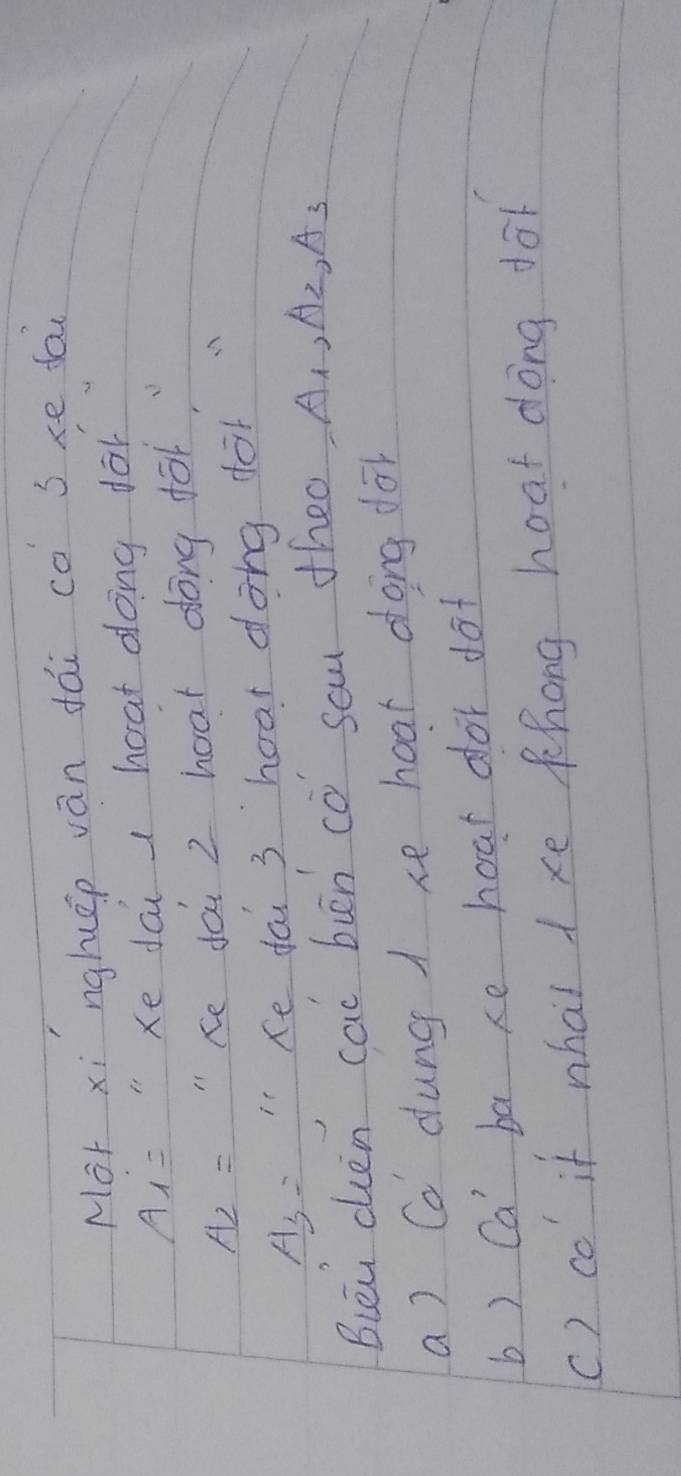 Một xí nghiệp vận tải có 3 xe tải
A1 = " xe tải 1 hoạt động tốt "
A2 = " xe tải 2 hoạt động tốt "
A3 = " xe tải 3 hoạt động tốt "
Biểu diễn các biến cố sau theo A1, A2, A3
a) Có đúng 1 xe hoạt động tốt
b) Cả ba xe hoạt đột tốt
c) có ít nhất 1 xe không hoạt động tốt